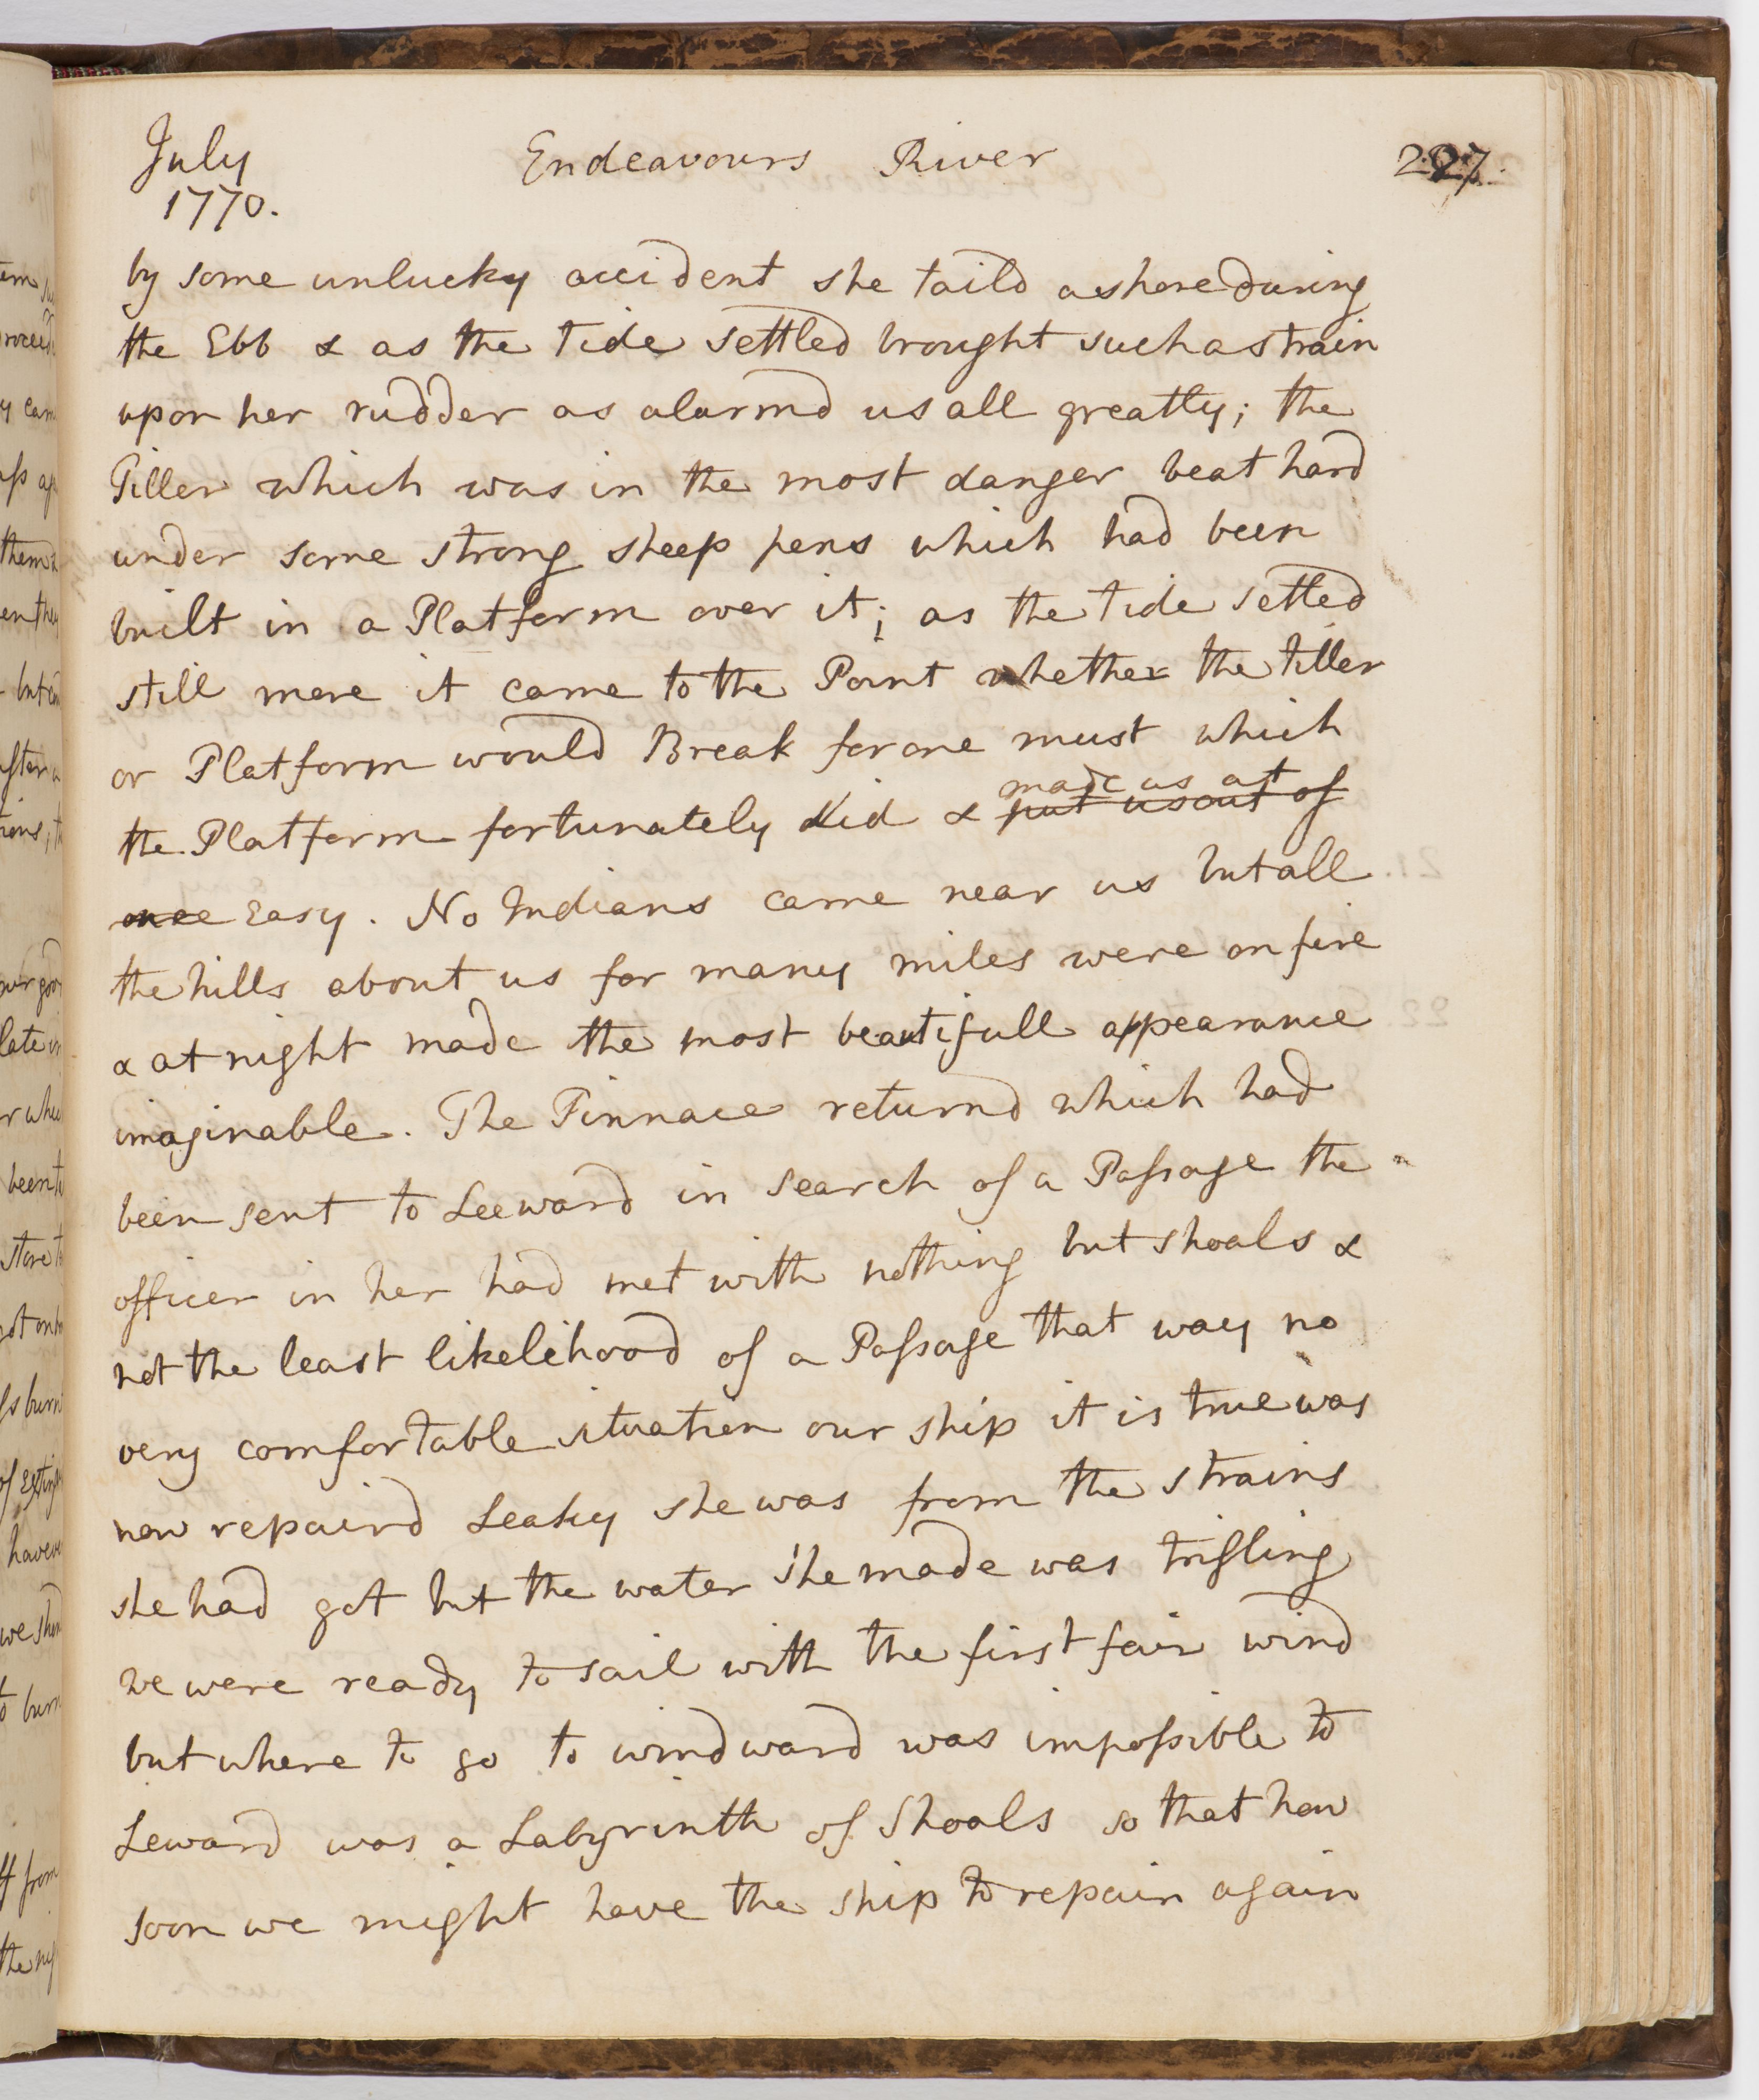 July
1770.
Endeavours River
227.
by some unlucky accident she taild ashore during
the Ebb & as the tide settled brought such a strain
upon her rudder as alarmd us all greatly; the
Tiller which was in the most danger beat hard
under some strong sheep pens which had been
built in a Platform over it; as the tide settled
still more it came to the Point whether the tiller
or Platform would Break for one must which
made us at
the Platform fortunately did & put us out of
once Easy. No Indians came near us but all
the hills about us for many miles were on fire
& at night made the most beautifull appearance
imaginable. The Pinnace returnd which had
been sent to Leeward in search of a Passage the
officer in her had met with nothing but shoals &
not the least likelihood of a Passage that way no
very comfortable situation our ship it is true was
now repaird Leaky she was from the strains
she had got but the water she made was trifling
we were ready to sail with the first fair wind
but where to go to windward was impossible to
Leward was a Labyrinth of Shoals so that how
soon we might have the ship to repair again